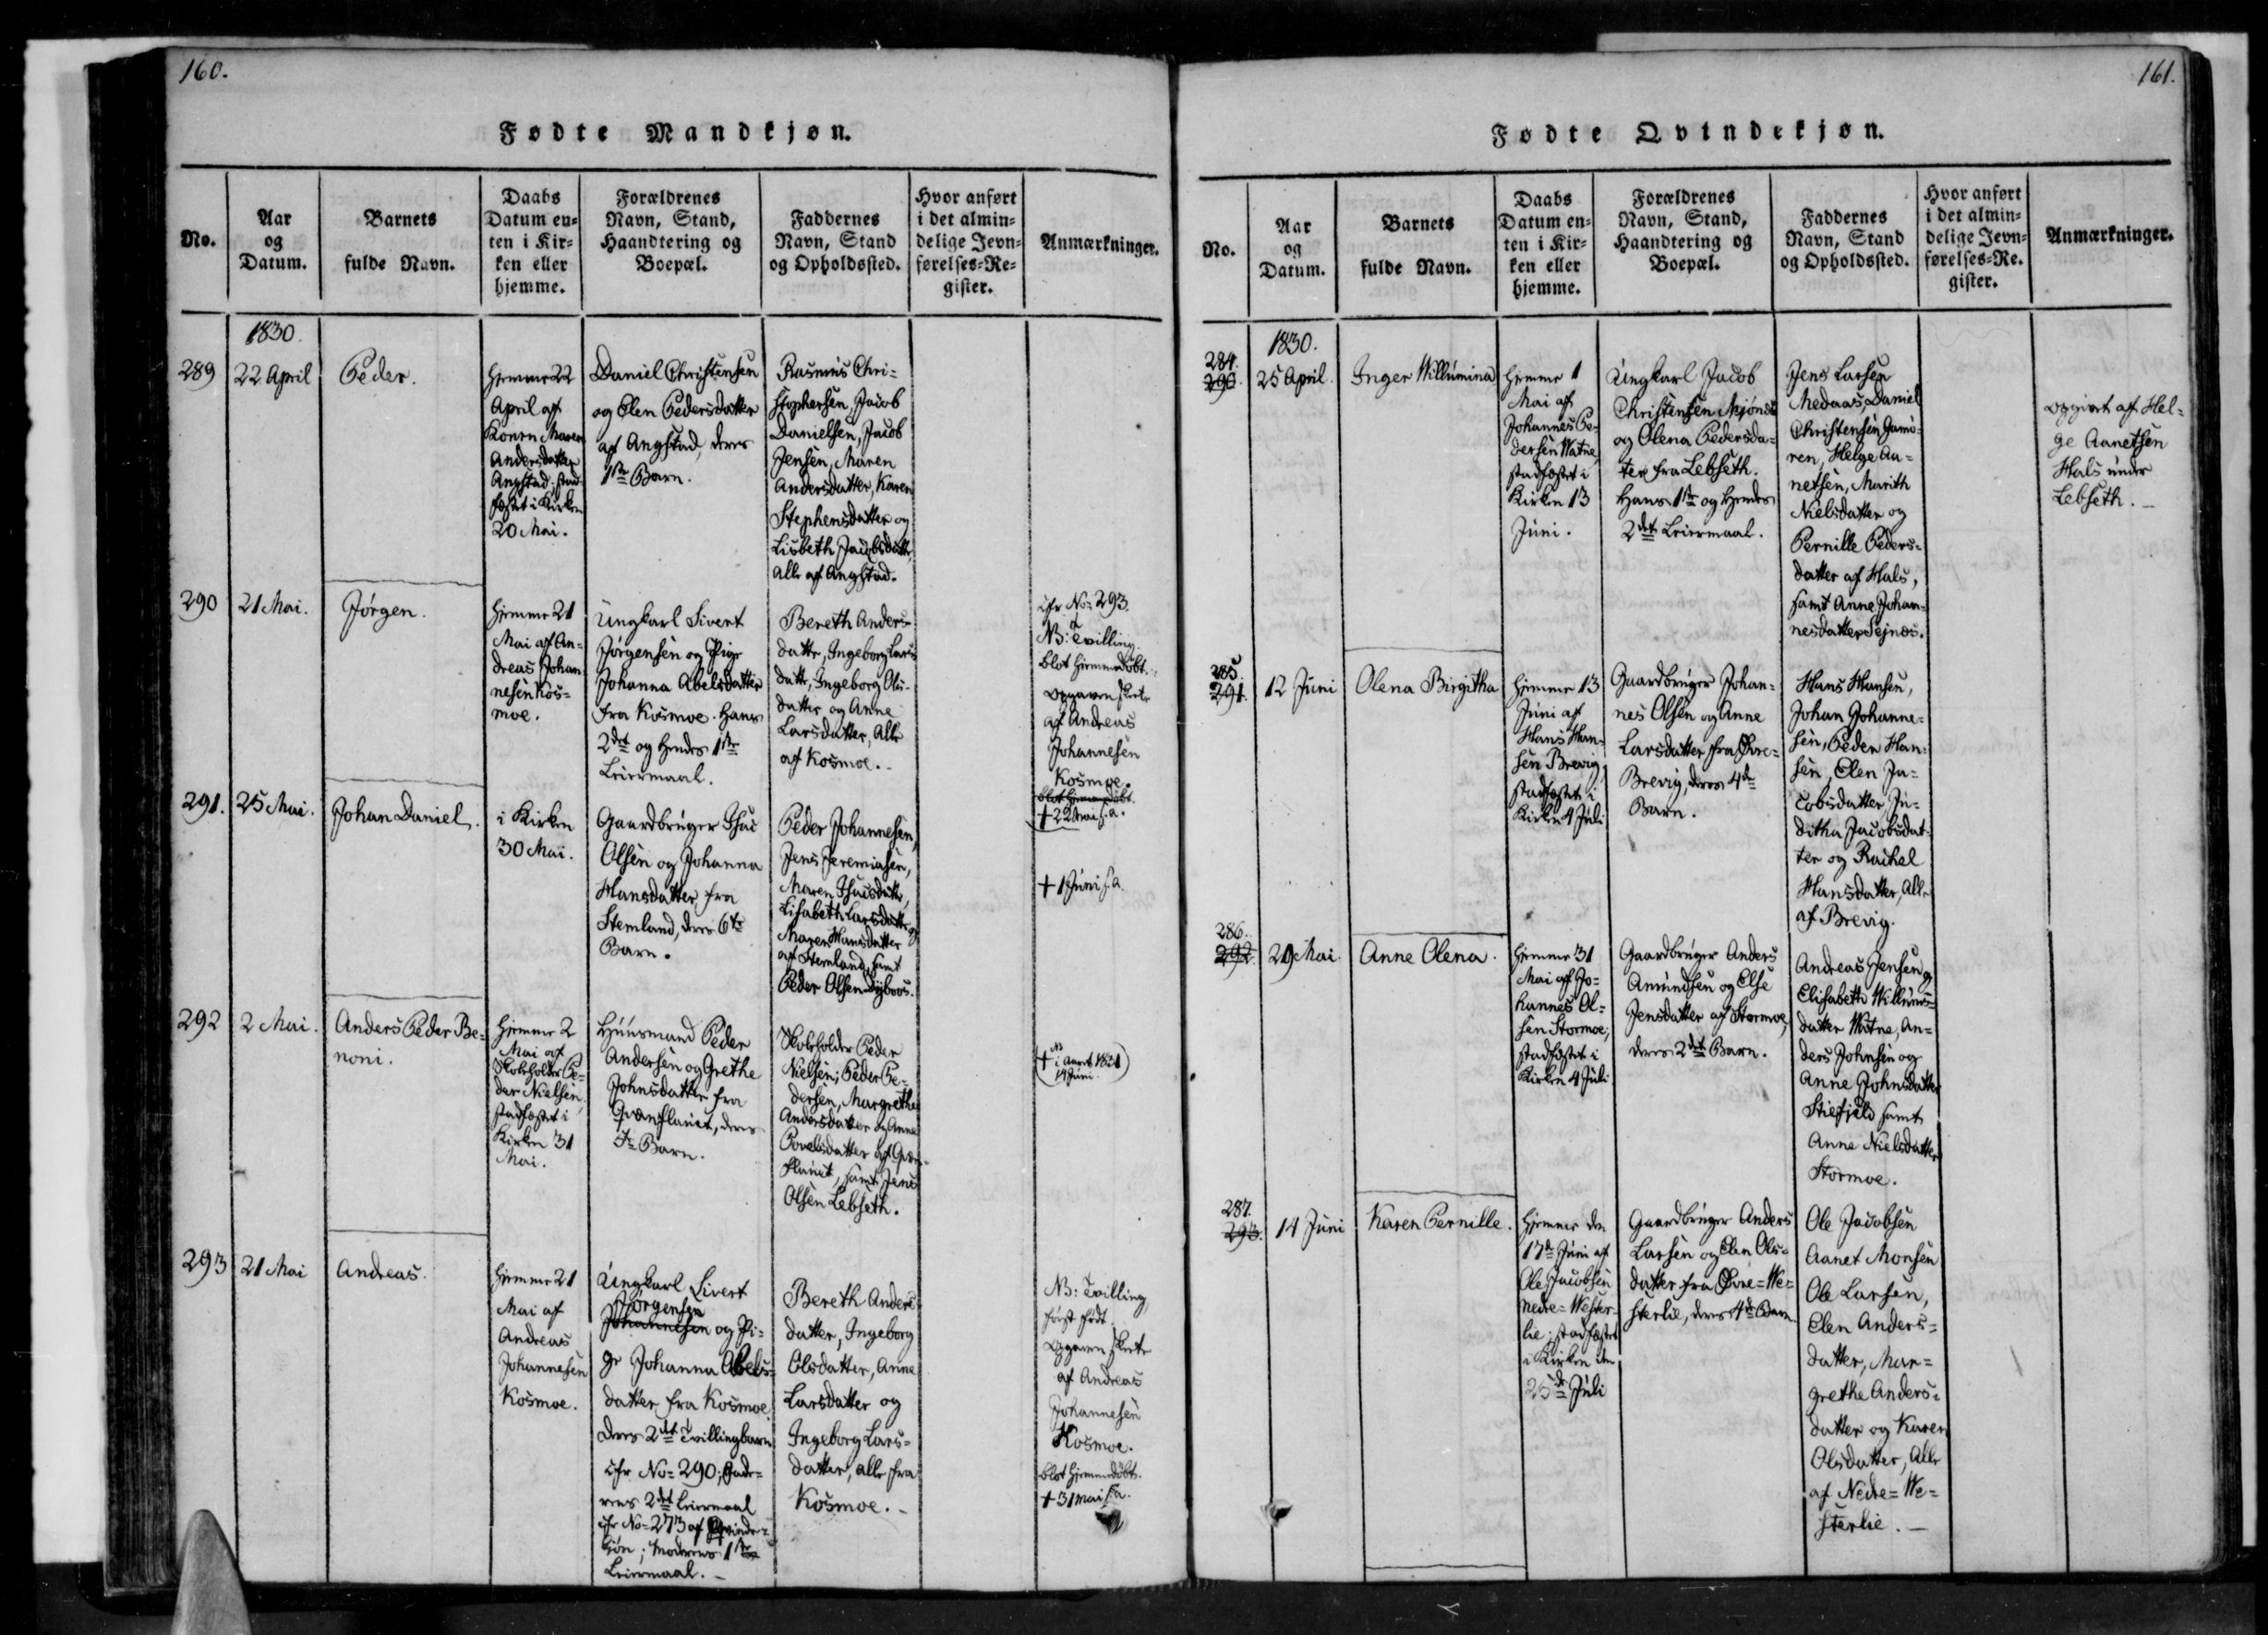 160.
Fødte Mandkjøn.
No.
Aar
og
Datum.
Barnets
fulde Navn.
Daabs
Datum en-
ten i Kir-
ken eller
hjemme.
Forældrenes
Navn, Stand,
Haandtering og
Boepæl.
Faddernes
Navn, Stand
og Opholdssted.
Hvor anført
i det almin-
delige Jevn-
førelses-Re-
gister.
Anmærkninger.
1830.
289
22 April
Peder.
Hjemme 22
April af
Konen Maren
Andersdatter
Angstad; stad-
fæstet i Kirken
20 Mai.
Daniel Christensen
og Elen Pedersdatter
af Angstad, deres
1ste Barn.
Rasmus Chri-
stophersen, Jacob
Danielsen, Jacob
Jensen, Maren
Andersdatter, Karen
Stephensdatter og
Lisbeth Jacobsdatter,
alle af Angstad.
290
21 Mai.
Jørgen.
Hjemme 21
Mai af An-
dreas Johan-
nesen Kos-
moe.
Ungkarl Sivert
Jørgensen og Pige
Johanna Abelsdatter
fra Kosmoe. Hans
2det og Hendes 1ste
Leiermaal.
Bereth Anders-
datter, Ingeborg Lars-
datter, Ingeborg Ols-
datter og Anne
Larsdatter, Alle
af Kosmoe.
cfr No= 293.
NB: Tvilling
blot hjemmedøbt.
Opgaven skete
af Andreas
Johannesen
Kosmoe.
blot hjemmedøbt.
+ 22 Mai s.a.
291.
25 Mai.
Johan Daniel.
i Kirken
30 Mai.
Gaardbruger Isac
Olsen og Johanna
Hansdatter, fra
Stemland, deres 6te
Barn.
Peder Johannesen,
Jens Jeremiasen,
Maren Isacsdatter,
Lisabeth Larsdatter og
Maren Hansdatter
af Stemland, samt
Peder Olsen Dybvos.
+ 1 Juni s.a.
292
2 Mai.
Anders Peder Be-
noni.
Hjemme 2
Mai af
Skoleholder Pe-
der Nielsen,
stadfæstet i
Kirken 31
Mai.
Huusmand Peder
Andersen og Grethe
Johnsdatter fra
Qvænflauet, deres
Barn.
Skoleholder Peder
Nielsen; Peder Pe-
dersen, Margrethe
Andersdatter og Anne
Povelsdatter af Qvæn-
flauet, samt Jens
Olsen Lebseth.
293
21 Mai
Andreas.
Hjemme 21
Mai af
Andreas
Johannesen
Kosmoe.
Ungkarl Sivert
Jørgensen
Johannesen og Pi-
ge Johanna Abels-
datter fra Kosmoe
deres 2det Tvillingbarn
cfr No= 290; Fade-
rens 2det Leiermaal
cfr No= 273 af Qvinde-
kjøn; Moderens 1ste
Leiermaal.
Bereth Anders-
datter, Ingeborg
Olsdatter, Anne
Larsdatter og
Ingeborg Lars-
datter, alle fra
Kosmoe.
NB: Tvilling
først født.
Opgaven skete
af Andreas
Johannesen
Kosmoe.
blot hjemmedøbt.
+ 31 Mai s.a.
161.
Fødte Qvindekjøn.
No.
Aar
og
Datum.
Barnets
fulde Navn.
Daabs
Datum en-
ten i Kir-
ken eller
hjemme.
Forældrenes
Navn, Stand,
Haandtering og
Boepæl.
Faddernes
Navn, Stand
og Opholdssted.
Hvor anført
i det almin-
delige Jevn-
førelses-Re-
gister.
Anmærkninger.
1830.
284.
290.
25 April.
Inger Willumina
Hjemme 1
Mai af
Johannes Pe-
dersen Watne,
stadfæstet i
Kirken 13
Juni.
Ungkarl Jacob
Christensen Mjønes
og Olena Pedersda-
ter fra Lebseth.
Hans 1ste og Hendes
2det Leiermaal.
Jens Larsen
Medaas, Daniel
Christensen
Helge Aa-
netsen, Marith
Nielsdatter og
Pernille Peders-
datter af Hals,
samt Anne Johan-
nesdatter Sejnæs.
opgivet af Hel-
ge Aanetsen
Hals under
Lebseth.
285
291.
12 Juni
Olena Birgitha
Hjemme 13
Juni af
Hans Han-
sen Brevig,
stadfæstet i
Kirken 4 Juli
Gaardbruger Johan-
nes Olsen og Anne
Larsdatter fra Øvre-
Brevig, deres 4de
Barn.
Hans Hansen,
Johan Johanne-
sen, Peder Han-
sen, Elen Ja-
cobsdatter, Ju-
ditha Jacobsdat-
ter og Rachel
Hansdatter, Alle
af Brevig.
286.
292.
29 Mai
Anne Olena.
Hjemme 31
Mai af Jo-
hannes Ol-
sen Stormoe;
stadfæstet i
Kirken 4 Juli
Gaardbruger Anders
Amundsen og Else
Jensdatter af Stormoe,
deres 2det Barn.
Andreas Jensen og
Elisabeth Willums-
datter Watne, An-
ders Johnsen og
Anne Johnsdatter
Stiefjeld samt
Anne Nielsdatter
Stormoe.
287.
293.
14 Juni
Karen Pernille.
Hjemme den
17de Juni af
Ole Jacobsen
nedre-Wester-
lie; stadfæstet
i Kirken den
25de Juli
Gaardbruger Anders
Larsen og Elen Ols-
datter fra Øvre-We-
sterlie, deres 4de Barn
Ole Jacobsen
Aanet Monsen
Ole Larsen,
Elen Anders-
datter, Mar-
grethe Anders-
datter og Karen
Olsdatter, Alle
af Nedre-We-
sterlie.